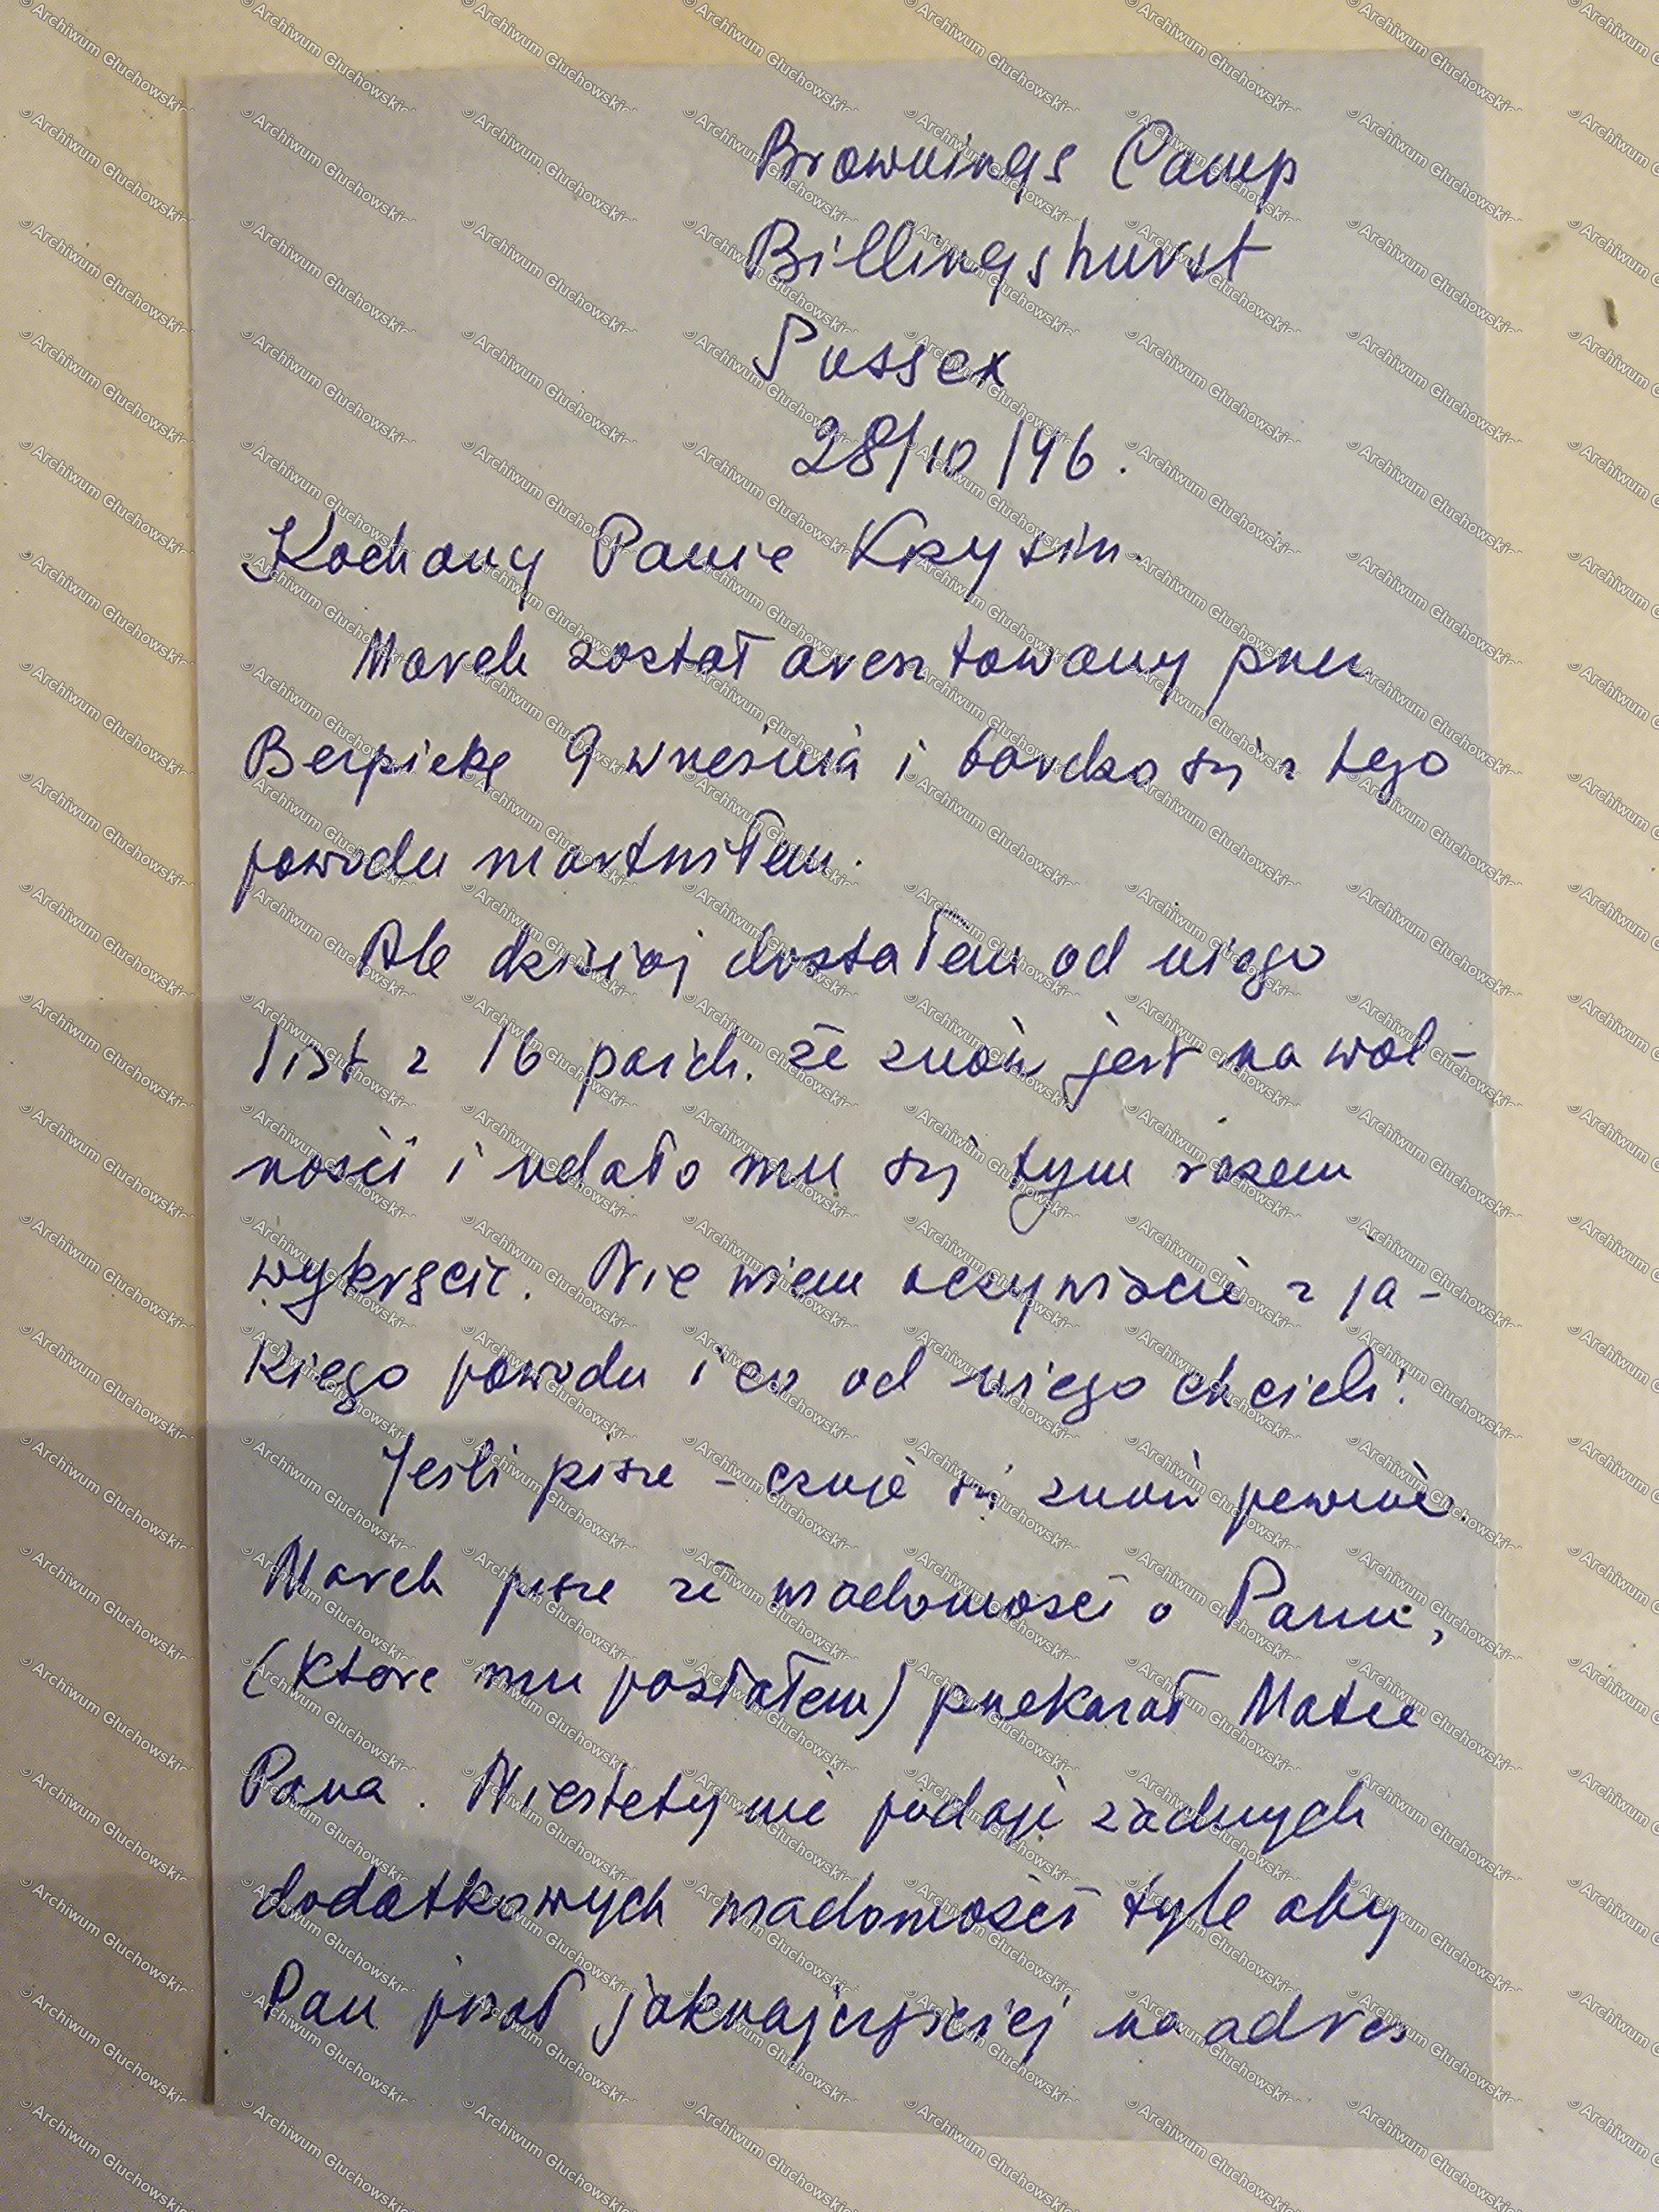 Brownings Camp
Billingshurst
Sussex
28/10/46.
Kochany Panie Krzysiu.
Marek został aresztowany przez
Bezpiekę 9 września i bardzo się z tego
powodu martwiłem.
Ale dzisiaj dostałem od niego
list z 16 paźdz. że znów jest na wol-
ności i udało mu się tym razem
wykręcić. Nie wiem oczywiście z ja-
kiego powodu i co od niego chcieli.
Jeśli pisze - czuje się znów pewnie.
Marek pisze że wiadomości o Panu,
(które mu posłałem) przekazał Matce
Pana. Niestety nie podaje żadnych
dodatkowych wiadomości tyle aby
Pan pisał jaknajczęściej na adres
© Archiwum Głuchowskich